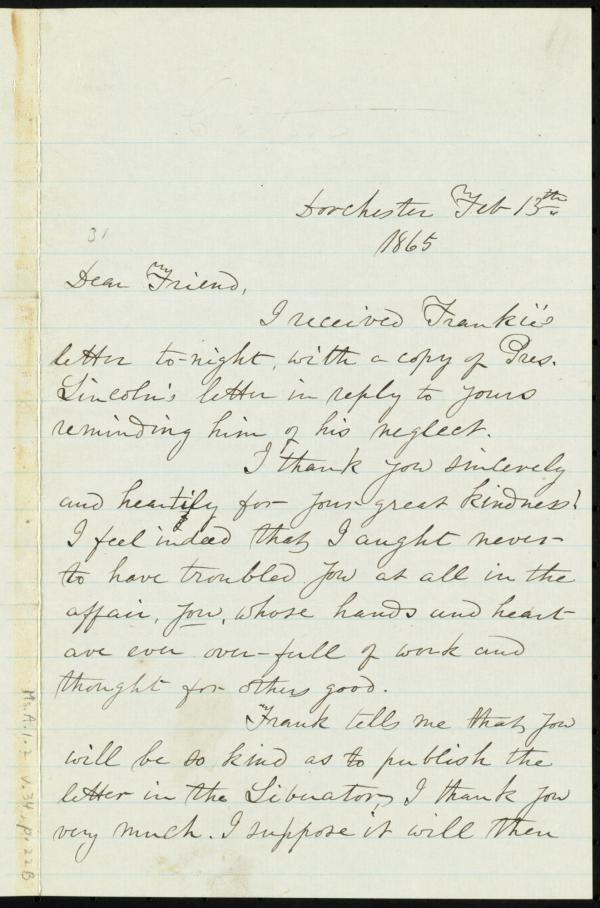 Dorchester Feb 13th
1865
31
Dear Friend,
I received Frankie's
letter to-night, with a copy of Pres.
Lincoln's letter in reply to yours
reminding him of his neglect.
I thank you sincerely
and heartily for your great kindness!
I feel indeed that I aught never
to have troubled you at all in the
affair, you, whose hands and heart
are ever over-full of work and
thought for others good.
Frank tells me that you
will be so kind as to publish the
letter in the Liberator, I thank you
very much. I suppose it will then
Ms.A.1.2 v.34, p.22B